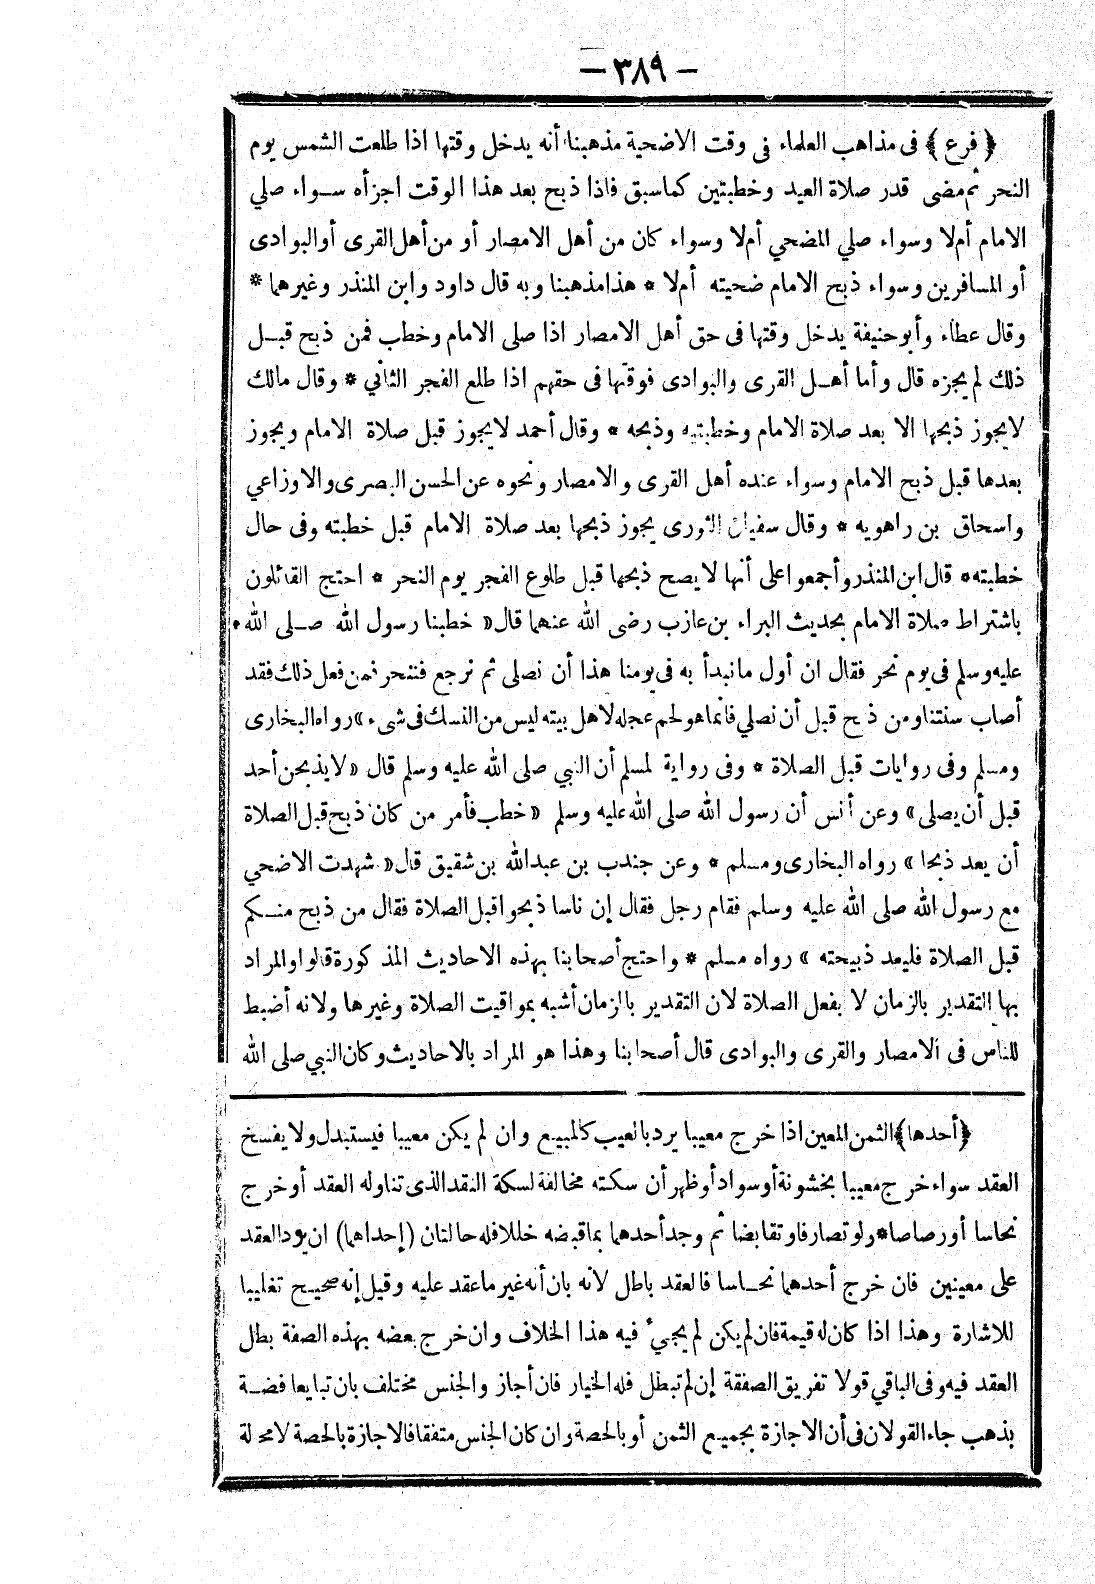 – ٣٨٩ –
﴿ فرع ﴾ فى مذاهب العلماء فى وقت الاضحية مذهبنا أنه يدخل وقتها اذا طلعت الشمس يوم
النحر ثم مضى قدر صلاة العيد وخطبتين كما سبق فاذا ذبح بعد هذا الوقت اجزأه سـواء صلي
الامام أم لا وسواء صلي المضحي أم لا وسواء كان من أهل الامصار أو من أهل القرى أو البوادى
أو المسافرين وسواء ذبح الامام ضحيته أم لا * هذا مذهبنا وبه قال داود وابن المنذر وغيرهما *
وقال عطاء وأبو حنيفة يدخل وقتها فى حق أهل الامصار اذا صلى الامام وخطب فمن ذبح قبـل
ذلك لم يجزه قال وأما أهـل القرى والبوادى فوقتها فى حقهم اذا طلع الفجر الثاني * وقال مالك
لا يجوز ذبحها الا بعد صلاة الامام وخطبتيه وذبحه * وقال أحمد لا يجوز قبل صلاة الامام ويجوز
بعدها قبل ذبح الامام وسواء عنده أهل القرى والامصار ونحوه عن الحسن البصرى والاوزاعي
واسحاق بن راهويه * وقال سفيان الثورى يجوز ذبحها بعد صلاة الامام قبل خطبته وفى حال
خطبته * قال ابن المنذر وأجمعوا على أنها لا يصح ذبحها قبل طلوع الفجر يوم النحر * احتج القائلون
باشتراط صلاة الامام بحديث البراء بن عازب رضى الله عنهما قال « خطبنا رسول الله صـلى الله
عليه وسلم فى يوم نحر فقال ان أول ما نبدأ به فى يومنا هذا أن نصلى ثم نرجع فننحر فمن فعل ذلك فقد
أصاب سنتنا ومن ذبح قبل أن نصلي فانما هو لحم عجله لاهل بيته ليس من النسك فى شىء » رواه البخارى
ومسلم وفى روايات قبل الصلاة * وفى رواية لمسلم أن النبي صلى الله عليه وسلم قال « لا يذبحن أحد
قبل أن يصلى » وعن أنس أن رسول الله صلى الله عليه وسلم « خطب فأمر من كان ذبح قبل الصلاة
أن يعد ذبحا » رواه البخارى ومسلم * وعن جندب بن عبد الله بن شقيق قال « شهدت الاضحي
مع رسول الله صلى الله عليه وسلم فقام رجل فقال إن ناسا ذبحوا قبل الصلاة فقال من ذبح منـكم
قبل الصلاة فليعد ذبيحته » رواه مسلم * واحتج أصحابنا بهذه الاحاديث المذكورة قالوا والمراد
بها التقدير بالزمان لا بفعل الصلاة لان التقدير بالزمان أشبه بمواقيت الصلاة وغيرها ولانه أضبط
للناس فى الامصار والقرى والبوادى قال أصحابنا وهذا هو المراد بالاحاديث وكان النبي صلى الله
﴿أحدها﴾ الثمن المعين اذا خرج معيبا يرد بالعيب كالمبيع وان لم يكن معيبا فيستبدل ولا يفسخ
العقد سواء خرج معيبا بخشونة أو سواد أو ظهر أن سكته مخالفة لسكة النقد الذى تناوله العقد أو خرج
نحاسا أو رصاصا * ولو تصارفا وتقابضا ثم وجد أحدهما بما قبضه خللا فله حالتان (إحداهما) ان يرد العقد
على معينين فان خرج أحدهما نحـاسا فالعقد باطل لانه بان أنه غير ما عقد عليه وقيل إنه صحيح تغليبا
للاشارة وهذا اذا كان له قيمة فان لم يكن لم يجيء فيه هذا الخلاف وان خرج بعضه بهذه الصفة بطل
العقد فيه وفى الباقي قولا تفريق الصفقة إن لم تبطل فله الخيار فان أجاز والجنس مختلف بان تبايعا فضـة
بذهب جاء القولان فى أن الاجازة بجميع الثمن أو بالحصة وان كان الجنس متفقا فالاجازة بالحصة لا محالة